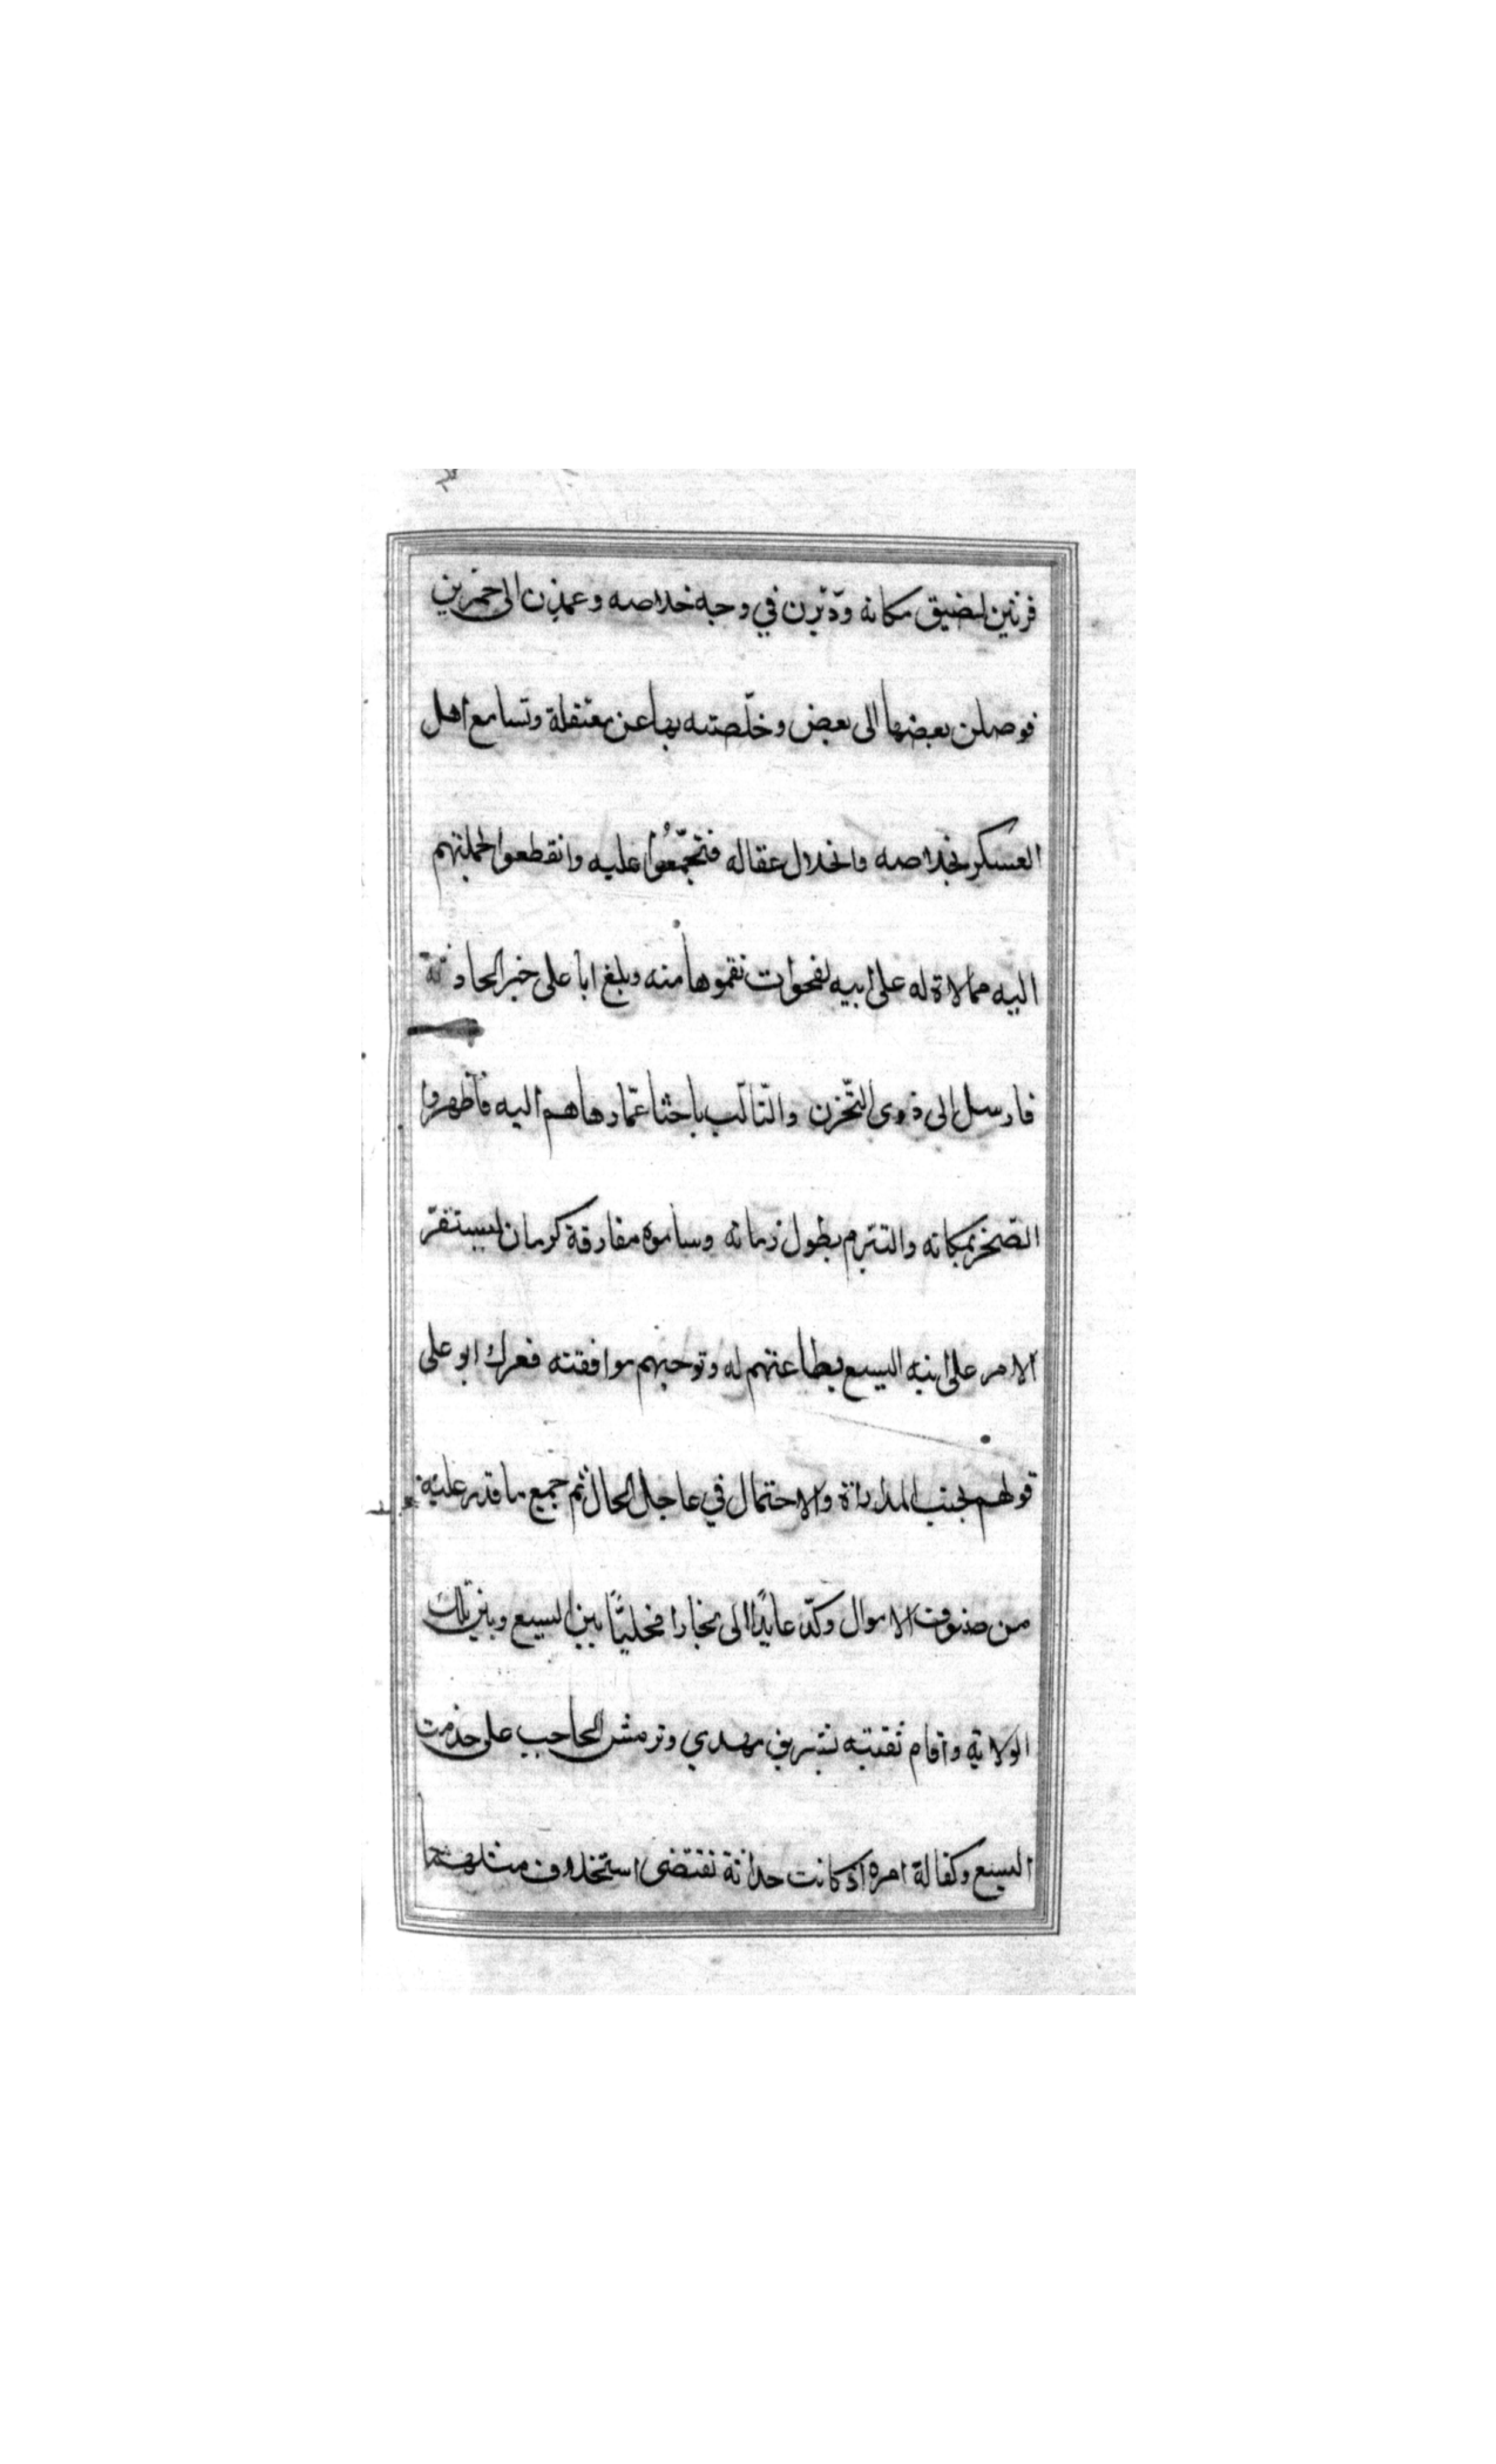 فرثين لضيق مكانه ودبّرن في وجه خلاصه وعمدن الى خمرهن
فوصلن بعضها الى بعض وخلّصته بها عن معتقلة وتسامع اهل
العسكر بخلاصه وانحلال عقاله فتجمّعُوا عليه وانقطعوا بحملتهم
اليه ممالاة له على ابيه لفحوات نقموها منه وبلغ ابا على خبر الحادثة
فارسل الى ذوى التّحزن والتّالّب باحثا عمّا دهاهم اليه فاظهروا
الضّجر بمكانه والتبّرم بطول زمانه وساموه مفارقة كرمان ليستقرّ
الامر على ابنه اليسع بطاعتهم له وتوجههم موافقته فعرك ابو على
قولهم بجنب المداراة والاحتمال في عاجل الحال ثم جمع ما قدر عليه
من صنوف الاموال وكرّ عايدًا الى بخارا مخليًّا بين اليسع وبين تلك
الولاية واقام ثقتيه بشريف مهدي وترمش الحاجب على خدمت
اليسع وكفالة امره اذ كانت حداثة تقتضى استخلاف مثلهما